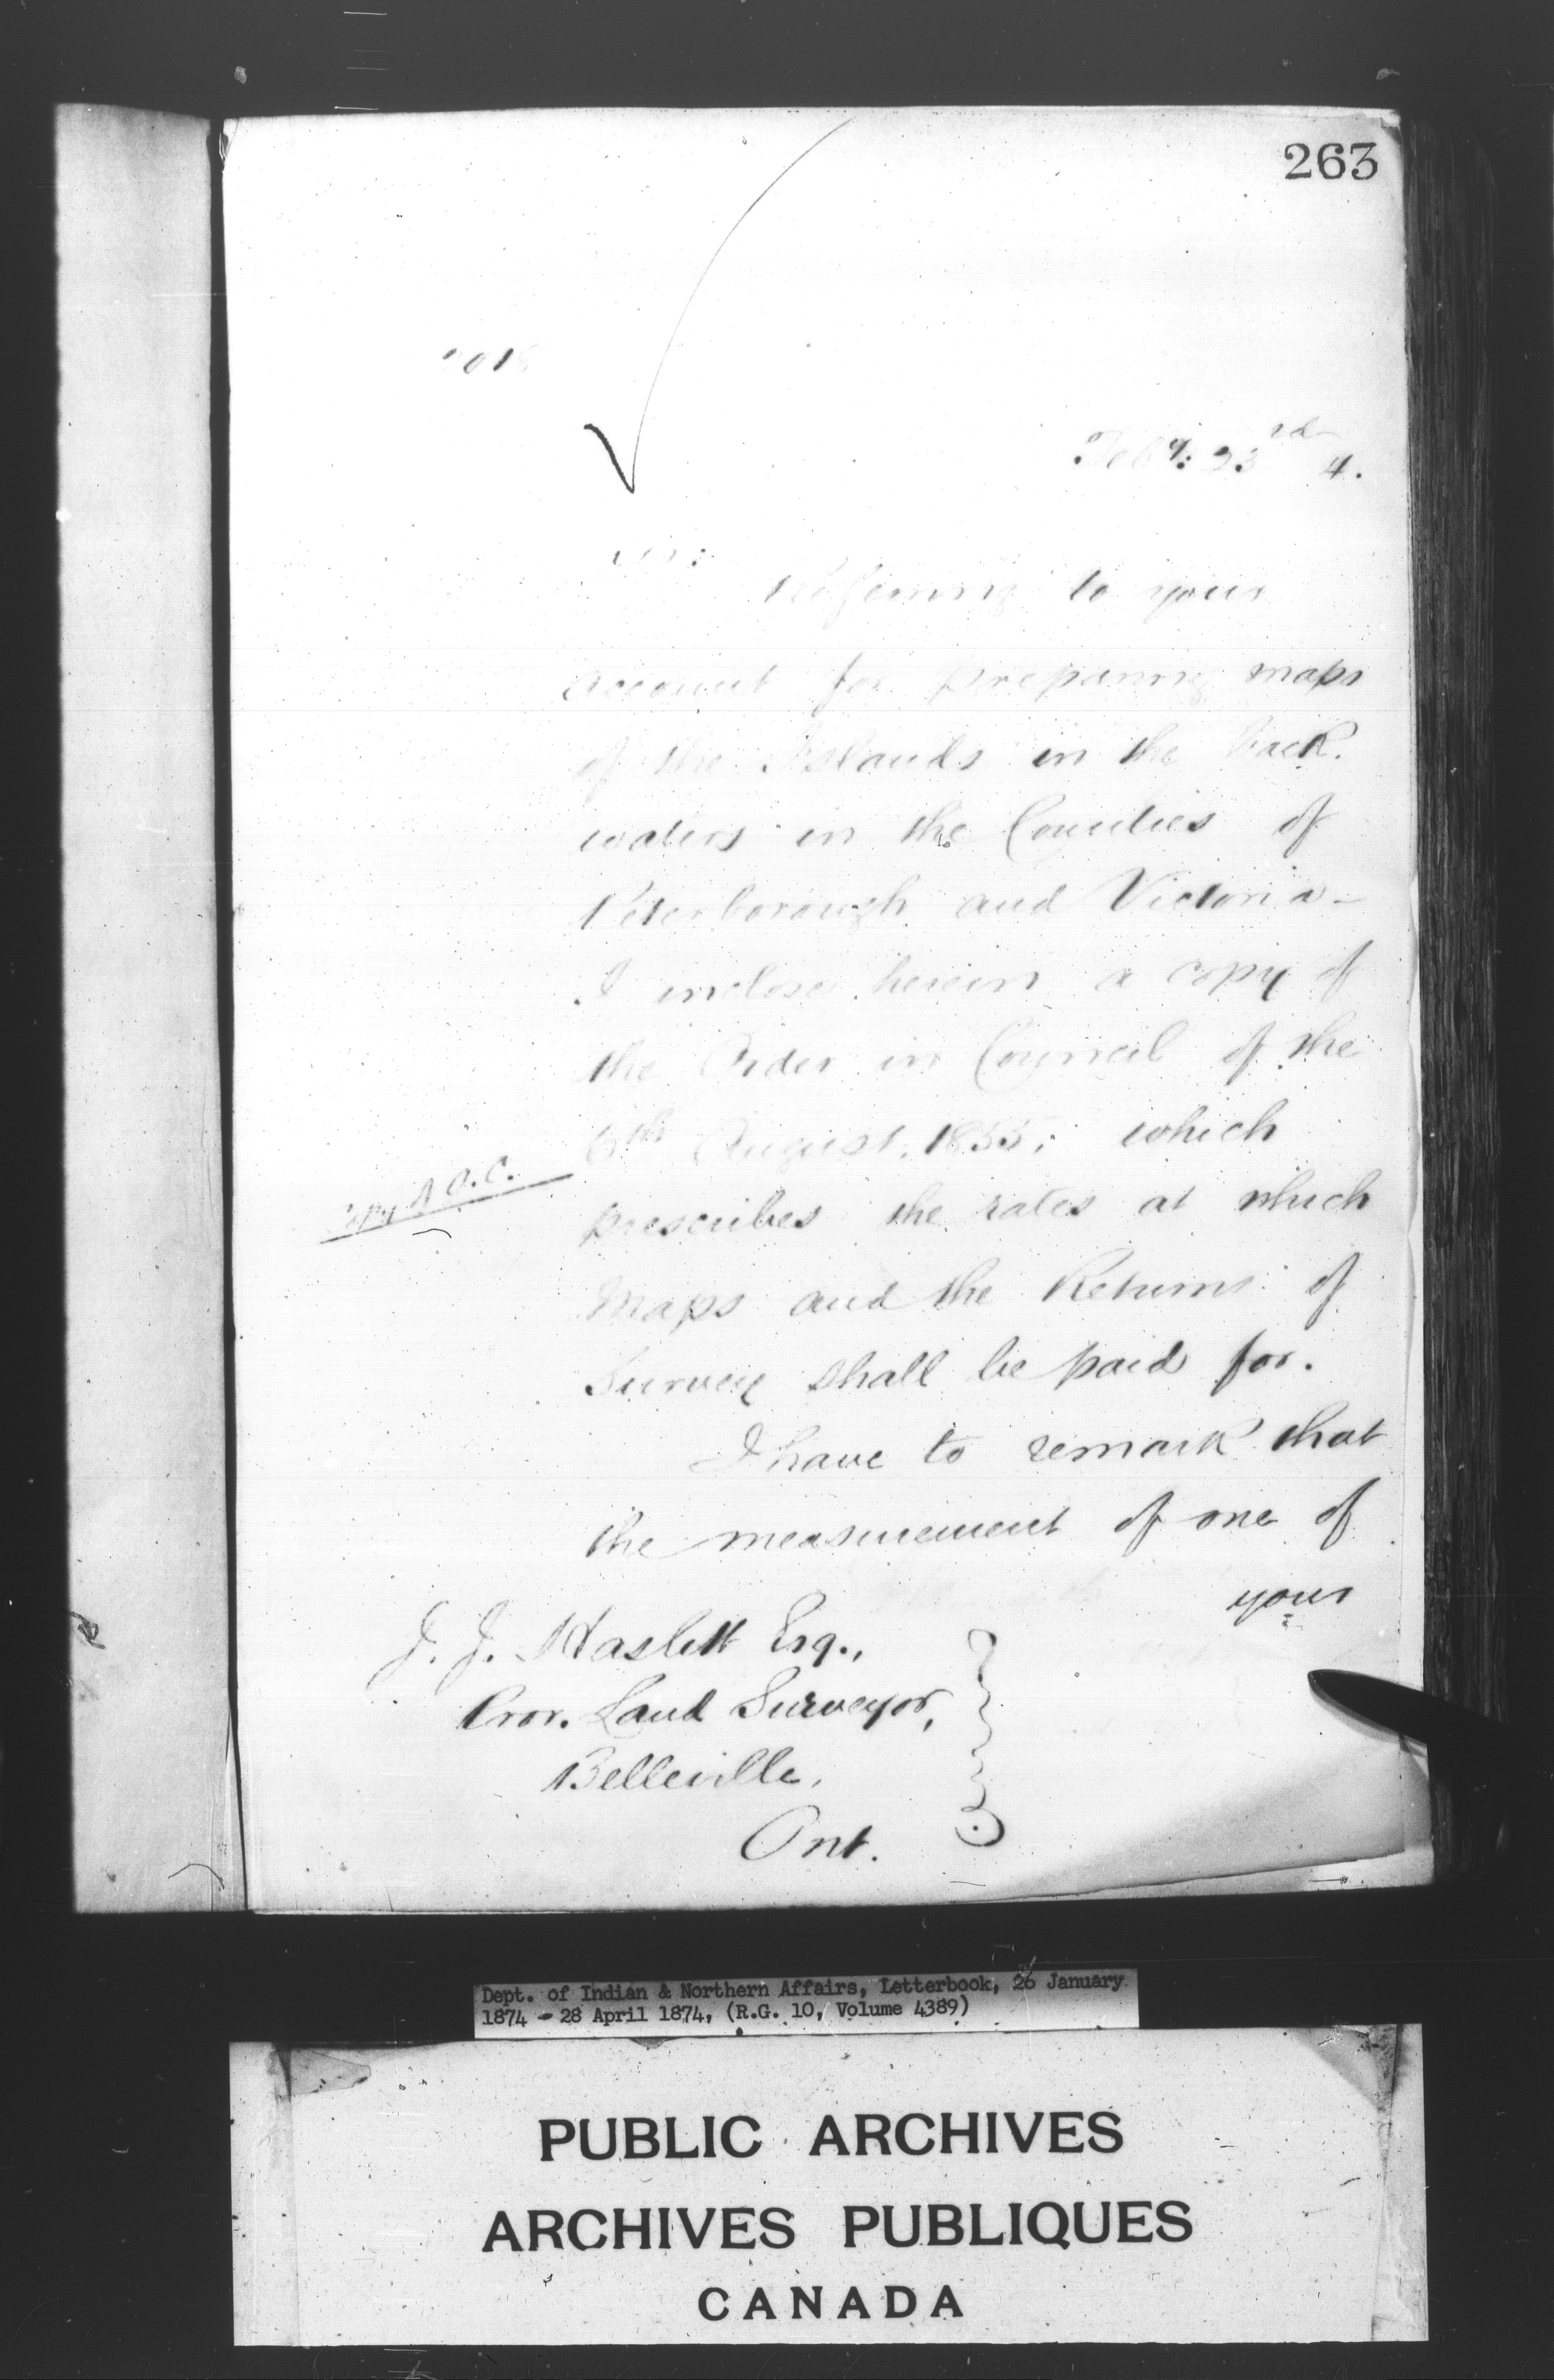 263
Feby: 23rd 4.
Sir:
Referring to your
account for preparing maps
of the Islands in the back
waters in the Counties of
Peterborough and Victoria -
I inclose herein a copy of
the Order in Council of the
6th August, 1855; which
Copy of O.C.
prescribes the rates at which
Maps and the Returns of
Survey shall be paid for.
I have to remark that
the measurement of one of
your
J. J. Haslett Esq.,
Prov. Land Surveyor,
Belleville,
Ont.
Dept. of Indian & Northern Affairs, Letterbook, 26 January
1874 - 28 April 1874, (R.G. 10, Volume 4389)
PUBLIC ARCHIVES
ARCHIVES PUBLIQUES
CANADA